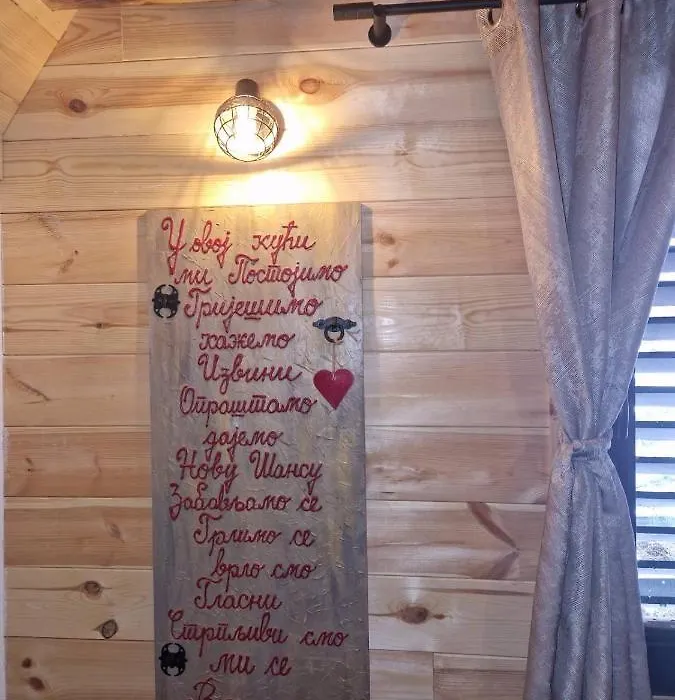 У овој кући
ми Постојимо
Гријешимо
кажемо
Извини
Опраштамо
дајемо
Нову Шансу
Забављамо се
Грлимо се
врло смо
Гласни
Стрпљиви смо
ми се